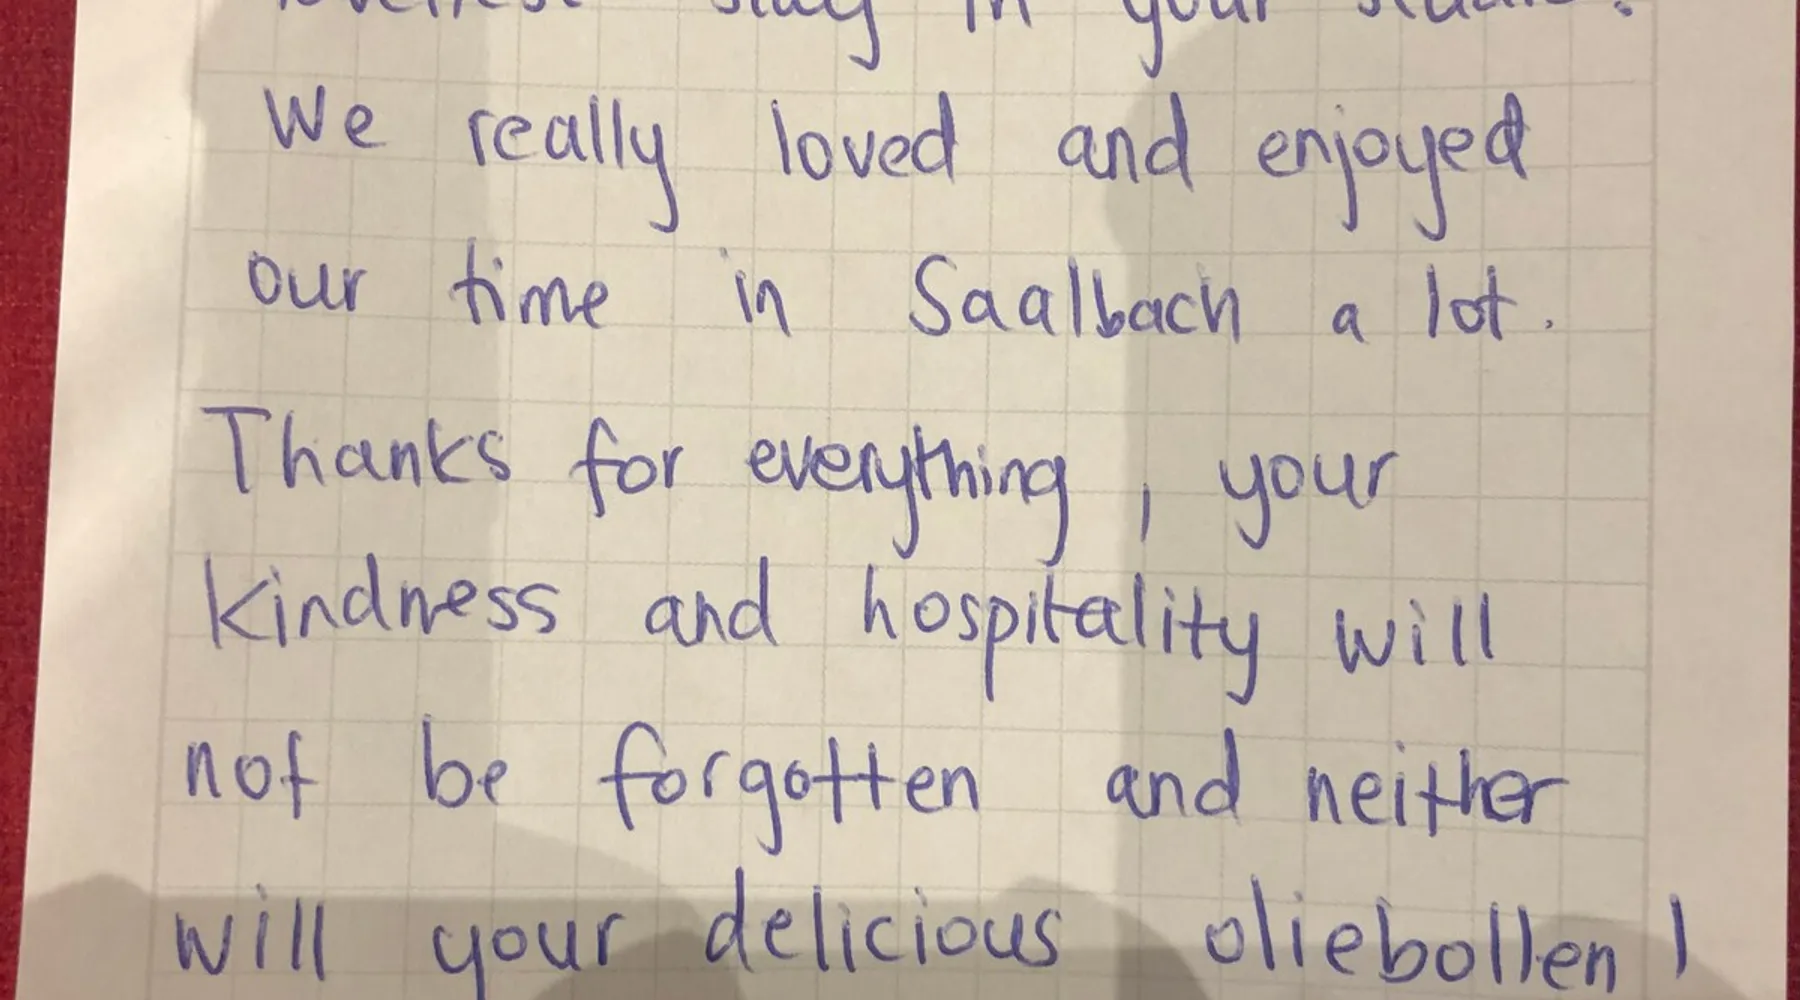 loveliest stay in your studio!
We really loved and enjoyed
our time in Saalbach a lot.
Thanks for everything, your
kindness and hospitality will
not be forgotten and neither
will your delicious oliebollen!